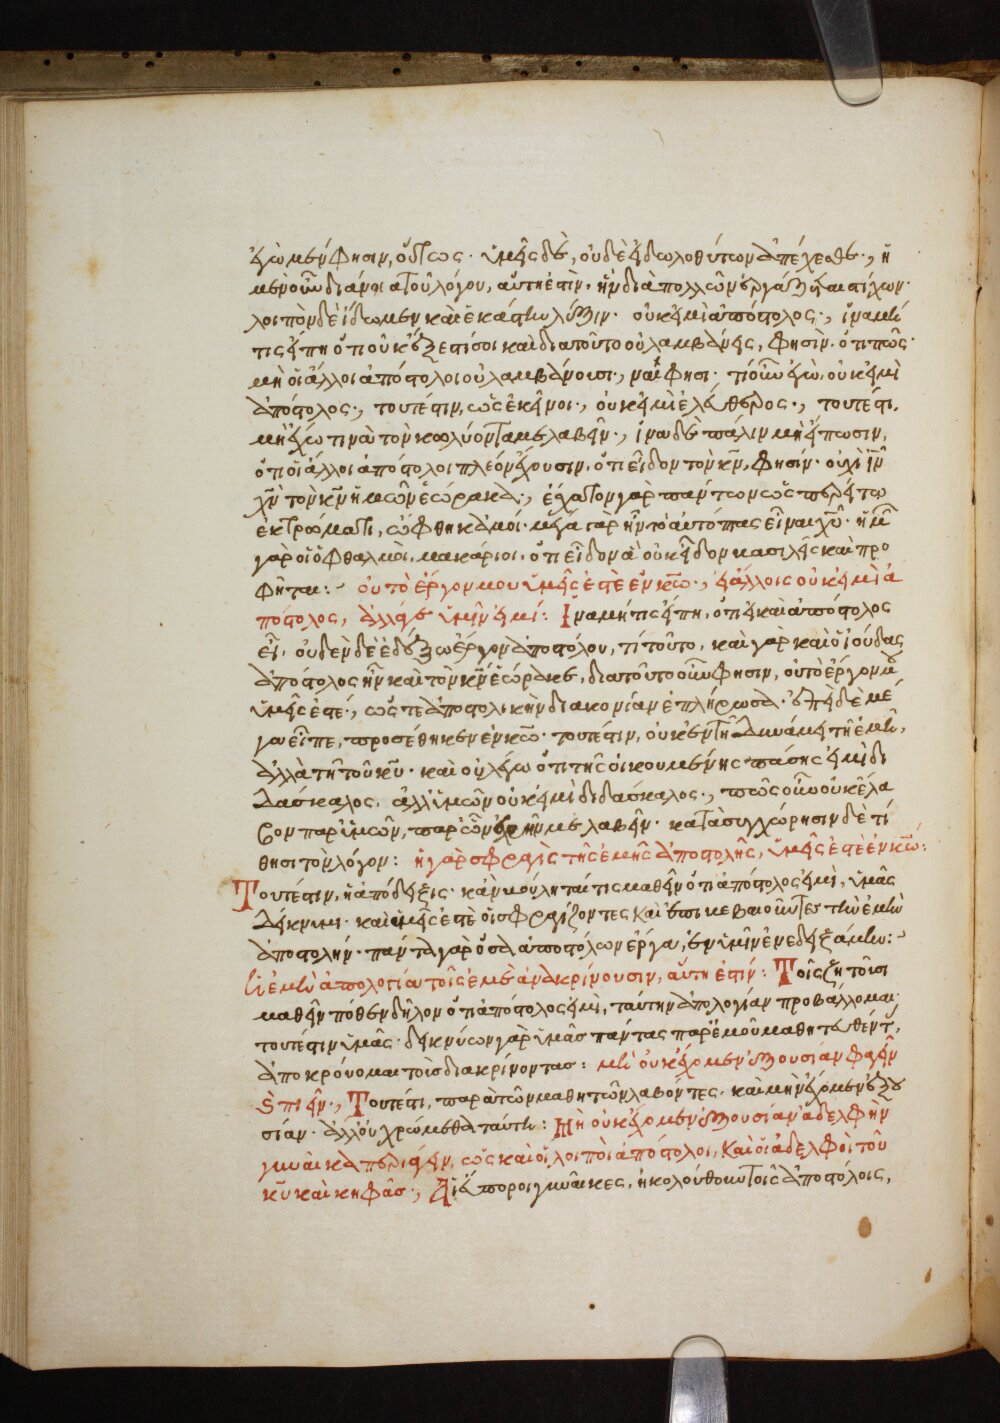 ἐγὼ μὲν φησιν, οὕτως· ὑμεῖς δὲ, οὐδὲ εἰδωλοθύτων ἀπέχεσθε·, ἡ
μὲν οὖν διάνοια τοῦ λόγου, αὕτη ἐστὶν, ἣν διὰ πολλῶν ἐργάζεται στίχων·
λοιπὸν δὲ ἴδωμεν καὶ ἑκάστην λέξιν· οὐκ εἰμὶ ἀπόστολος·, ἵνα μή
τις εἴπη ὅτι οὐκ ἔξεστί σοι καὶ διατοῦτο οὐ λαμβάνεις, φησὶν· ὅτι πῶς·
μὴ οἱ ἄλλοι ἀπόστολοι οὐ λαμβάνουσι·, ναί φησι· τί οὖν ἐγὼ, οὐκ εἰμὶ
ἀπόστολος·, τουτέστιν, ὡς ἐκεῖνοι·, οὐκ εἰμὶ ἐλεύθερος·, τουτέστι,
μὴ ἔχω τινὰ τὸν κωλύοντά με λαβεῖν·, ἵνα δὲ πάλιν μὴ εἴπωσιν,
ὅτι οἱ ἄλλοι ἀπόστολοι πλέον ἔχουσιν, ὅτι εἶδον τὸν κν, φησίν· οὐχὶ ιν
χν τὸν κν ἡμῶν ἑώρακα·, ἔσχατον γὰρ πάντων ὡσπερεὶ τῶ
ἐκτρώματι, ὤφθη κἀμοί· μέγα γὰρ ἦν τὸ αὐτόπτας εἶναι χυ· ἡμ
γὰρ οἱ ὀφθαλμοὶ, μακάριοι, ὅτι εἶδον ἃ οὐκ εἶδον βασιλεῖς καὶ προ
φῆται:- οὐ τὸ ἔργον μου ὑμεῖς ἐστὲ ἐν κω·, εἰ ἄλλοις οὐκ εἰμὶ ἀ
πόστολος, ἀλλάγε ὑμῖν εἰμί: Ἵνα μή τις εἴπη, ὅτι εἰ καὶ ἀπόστολος
εἶ, οὐδὲν δὲ ἐδείξω ἔργον ἀποστόλου, τί τοῦτο, καὶ γὰρ καὶ ὁ ἰούδας
ἀπόστολος ἦν καὶ τὸν κν ἑώρακε, διατοῦτο οὖν φησιν, οὐ τὸ ἔργον μου
ὑμεῖς ἐστέ·, ὥστε ἀποστολικὴν διακονίαν ἐπλήρωσα· ἐπεὶ δὲ μέ
γα εἶπε, προσέθηκεν ἐν κω· τουτέστιν, οὐκ ἐν τῆ δυνάμει τῆ ἐμῆ,
ἀλλὰ τῆ τοῦ κυ· καὶ οὐ λέγω ὅτι τῆς οἰκουμένης πάσης εἰμὶ δι
δάσκαλος, ἀλλ' ὑμῶν οὐκ εἰμὶ διδάσκαλος·, πῶς οὖν οὐκ ἔλα
βον παρ' ὑμῶν, παρ' ὧν χρῆν με λαβεῖν· κατὰ συγχώρησιν δὲ τί
θησι τὸν λόγον: ἡ γὰρ σφραγὶς τῆς ἐμῆς ἀποστολῆς, ὑμεῖς ἐστὲ ἐν κω:
Τουτέστιν, ἡ ἀπόδειξις· κἂν βούληταί τις μαθεῖν ὅτι ἀπόστολος εἰμὶ, ὑμᾶς
δείκνυμι· καὶ ὑμεῖς ἐστὲ οἱ σφραγίζοντες καὶ ἐπιβεβαιοῦντες τὴν ἐμὴν
ἀποστολήν· πάντα γὰρ ὅσα ἀποστόλων ἔργα, ἐν ὑμῖν ἐνεδειξάμην:-
ἡ ἐμὴ ἀπολογία τοῖς ἐμὲ ἀνακρίνουσιν, αὕτη ἐστίν: Τοῖς ζητοῦσι
μαθεῖν πόθεν δῆλον ὅτι ἀπόστολος εἰμὶ, ταύτην ἀπολογίαν προβάλλομαι,
τουτέστιν ὑμᾶς· δεικνύων γὰρ ὑμᾶς πάντας παρ' ἐμοῦ μαθητευθέντ,
ἀποκρούομαι τοὺς διακρίνοντας: μὴ οὐκ ἔχομεν ἐξουσίαν φαγεῖν
ἢ πιεῖν·, Τουτέστι, παρὰ τῶν μαθητῶν λαβόντες· καὶ μὴν ἔχομεν ἐξου
σίαν· ἀλλ' οὐ χρώμεθα ταύτη: Μὴ οὐκ ἔχομεν ἐξουσίαν ἀδελφὴν
γυναῖκα περιάγειν, ὡς καὶ οἱ λοιποὶ ἀπόστολοι, καὶ οἱ ἀδελφοὶ τοῦ
κυ καὶ κηφᾶς·, Αἱ εὔποροι γυναῖκες, ἠκολούθουν τοῖς ἀποστόλοις,